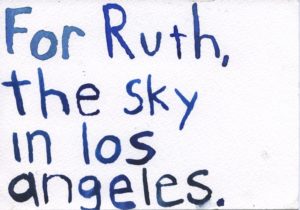 For Ruth,
the sky
in los
angeles.